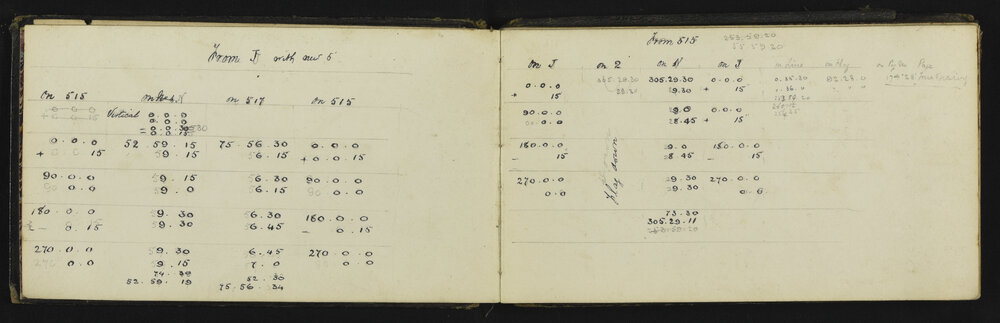 From J with new 5"
on 515 on 517 on 515
0 . 0 . 0
+ 0 . 0 15
Vertical 0 . 0 . 0
0 . 0 . 0
= 0 . 0 30
0 . 0 15
0 . 0 . 0 52 . 59 . 15 75 . 56 . 30 0 . 0 . 0
+ 0 . 0 15 59 . 15 56 . 15 + 0 . 0 . 15
90 . 0 . 0 59 . 15 56 . 30 90 . 0 . 0
90 0 . 0 59 . 0 56 . 15 90 0 . 0
180 . 0 . 0 59 . 30 56 . 30 180 . 0 . 0
- 0 . 15 59 . 30 56 . 45 - 0 . 15
270 . 0 . 0 59 . 30 56 . 45 270 . 0 . 0
270 0 . 0 59 . 15 57 . 0 0 . 0
74 . 30 52 . 30
52 . 59 . 19 75 . 56 . 34
From 515 253.59.20
55 59 20
on J on 2 on N on J
0 . 0 . 0 365.29.30 305.29.30 0 . 0 . 0 0 . 35.30 82.28.0
+ 15 29.30 29.30 + 15 0 . 36.0
90 . 0 . 0 29.0 0 . 0 . 0
0 . 0 28.45 + 15
180 . 0 . 0 29.0 180 . 0 . 0
- 15 28.45 - 15
Flag down
270 . 0 . 0 29.30 270 . 0 . 0
0 . 0 29.30 0 . 0
73.30
305.29.11
253.59.20